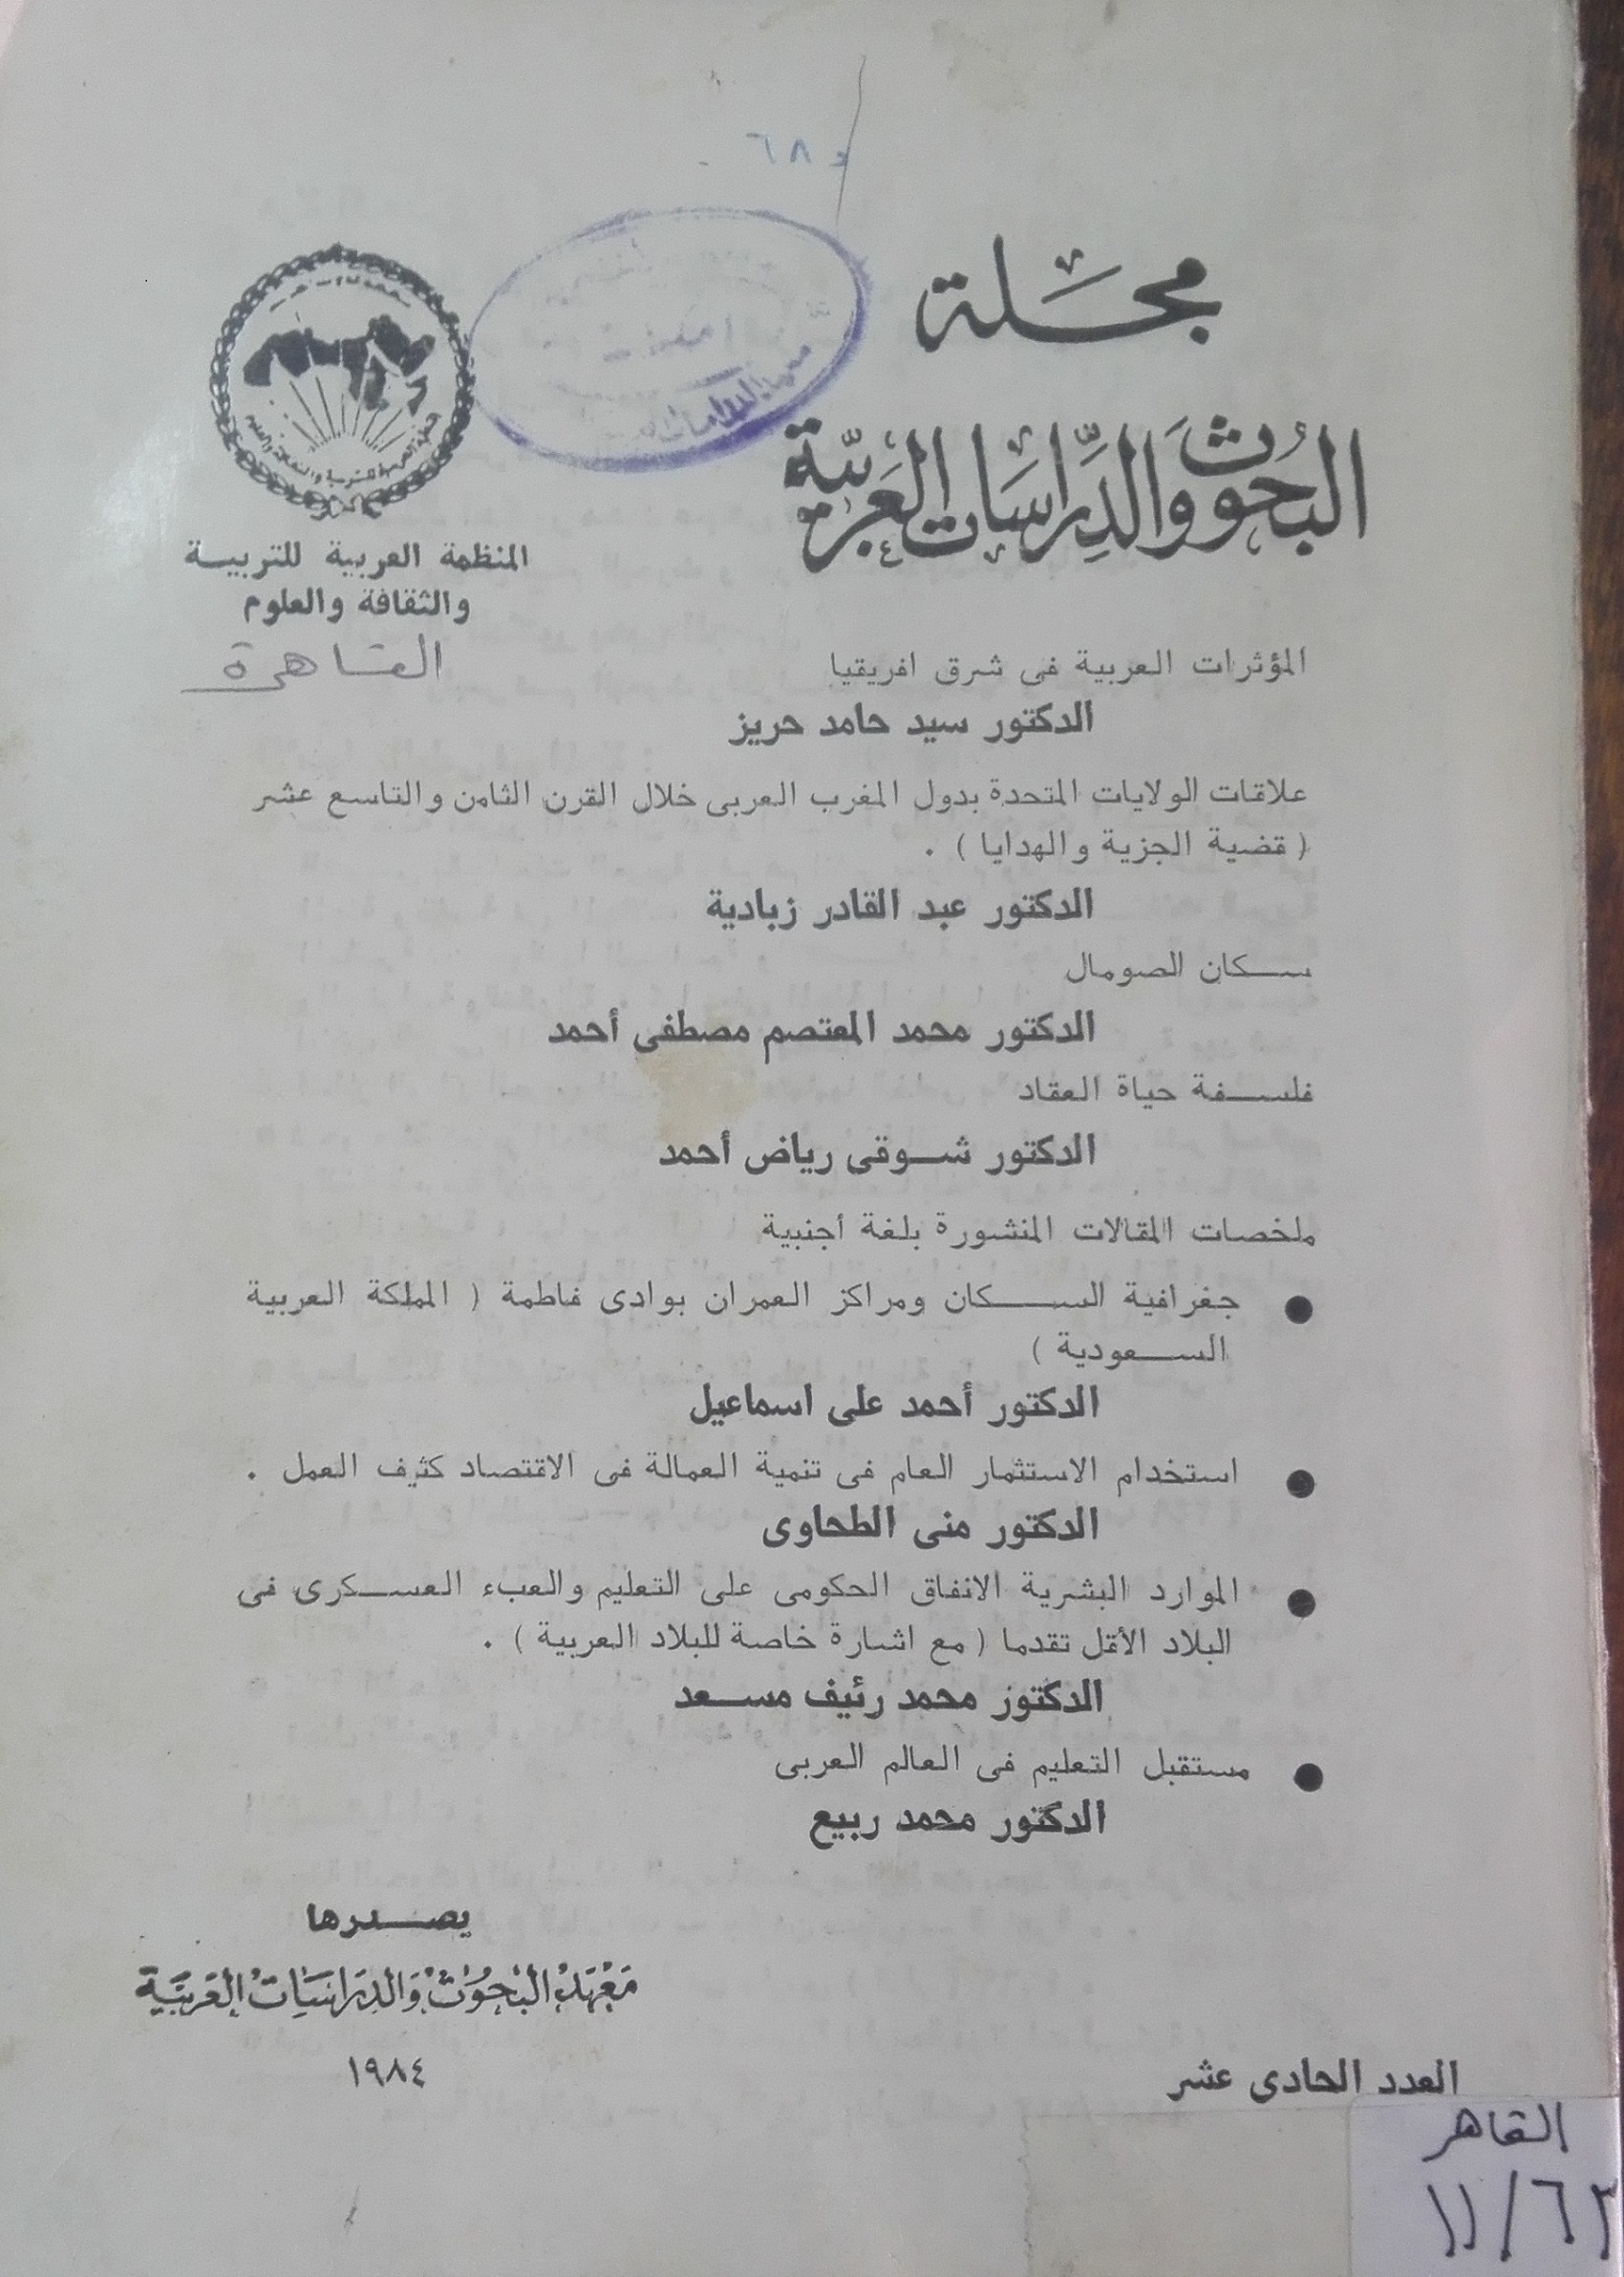 ٦٨٠
مجلة
البحوث والدراسات العربية
المنظمة العربية للتربية
والثقافة والعلوم
القاهرة
المؤثرات العربية فى شرق افريقيا
الدكتور سيد حامد حريز
علاقات الولايات المتحدة بدول المغرب العربى خلال القرن الثامن والتاسع عشر
( قضية الجزية والهدايا ) .
الدكتور عبد القادر زبادية
سكان الصومال
الدكتور محمد المعتصم مصطفى أحمد
فلسفة حياة العقاد
الدكتور شوقى رياض أحمد
ملخصات المقالات المنشورة بلغة أجنبية
● جغرافية السكان ومراكز العمران بوادى فاطمة ( المملكة العربية
السعودية )
الدكتور أحمد على اسماعيل
● استخدام الاستثمار العام فى تنمية العمالة فى الاقتصاد كثيف العمل .
الدكتور منى الطحاوى
● الموارد البشرية الانفاق الحكومى على التعليم والعبء العسكرى فى
البلاد الأقل تقدما ( مع اشارة خاصة للبلاد العربية ) .
الدكتور محمد رئيف مسعد
● مستقبل التعليم فى العالم العربى
الدكتور محمد ربيع
يصدرها
معهد البحوث والدراسات العربية
١٩٨٤
العدد الحادى عشر
القاهر
١١/٦٢